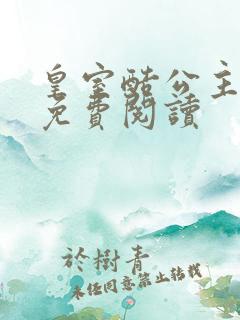 皇室酷公主
免費閱讀
於樹青
未经同意禁止转载